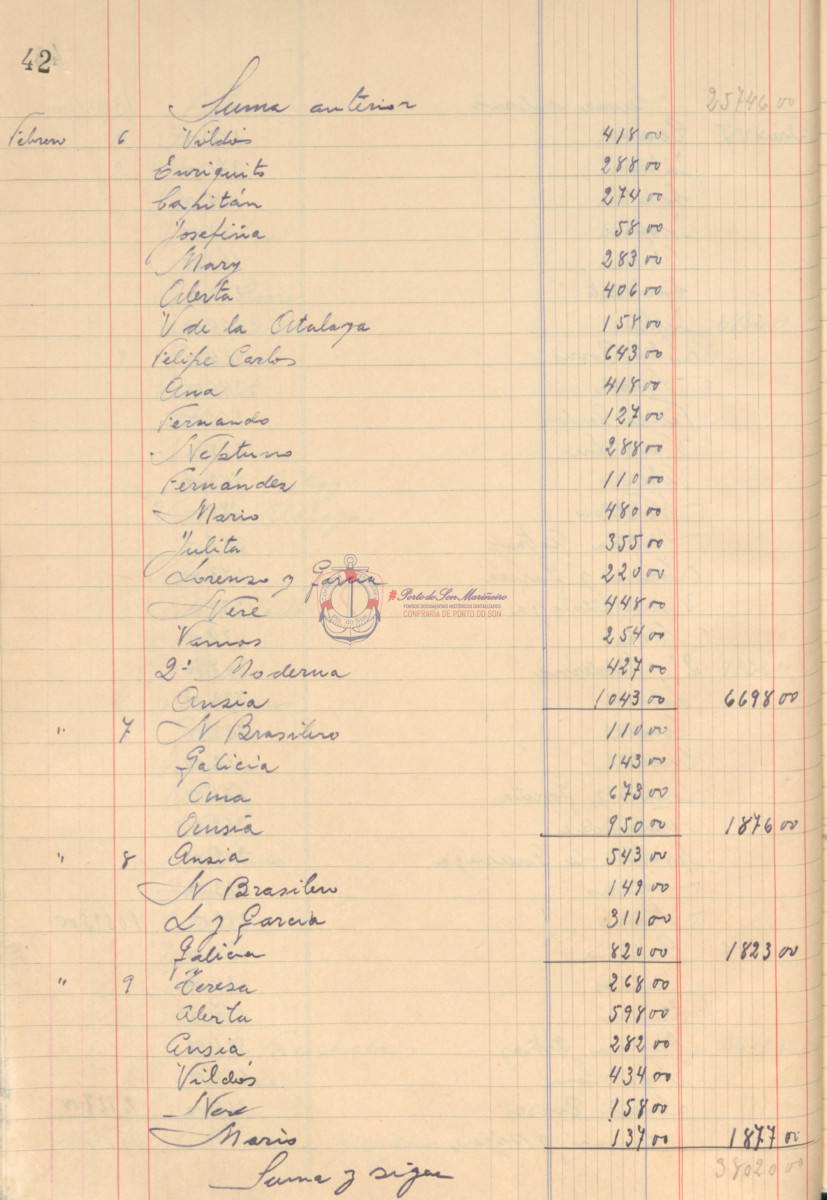 42
Suma anterior 25746 00
Febrero 6 Vildós 418 00
Enriquito 288 00
Capitán 274 00
Josefina 58 00
Mary 283 00
Alerta 406 00
V de la Atalaya 158 00
Felipe Carlos 643 00
Ana 418 00
Fernando 127 00
Neptuno 288 00
Fernández 110 00
Mario 480 00
Julita 355 00
Lorenso y García 220 00
Nere 448 00
Vamos 254 00
2ª Moderna 427 00
Ansia 1043 00 6698 00
" 7 N Brasilero 110 00
Galicia 143 00
Ana 673 00
Ansia 950 00 1876 00
" 8 Ansia 543 00
N Brasilero 149 00
L y García 311 00
Galicia 820 00 1823 00
" 9 Teresa 268 00
Alerta 598 00
Ansia 282 00
Vildós 434 00
Nere 158 00
Mario 137 00 1877 00
Suma y sigue 38020 00
Porto do Son Mariñeiro
FONDOS DOCUMENTAIS HISTÓRICOS DIXITALIZADOS
CONFRARÍA DE PORTO DO SON